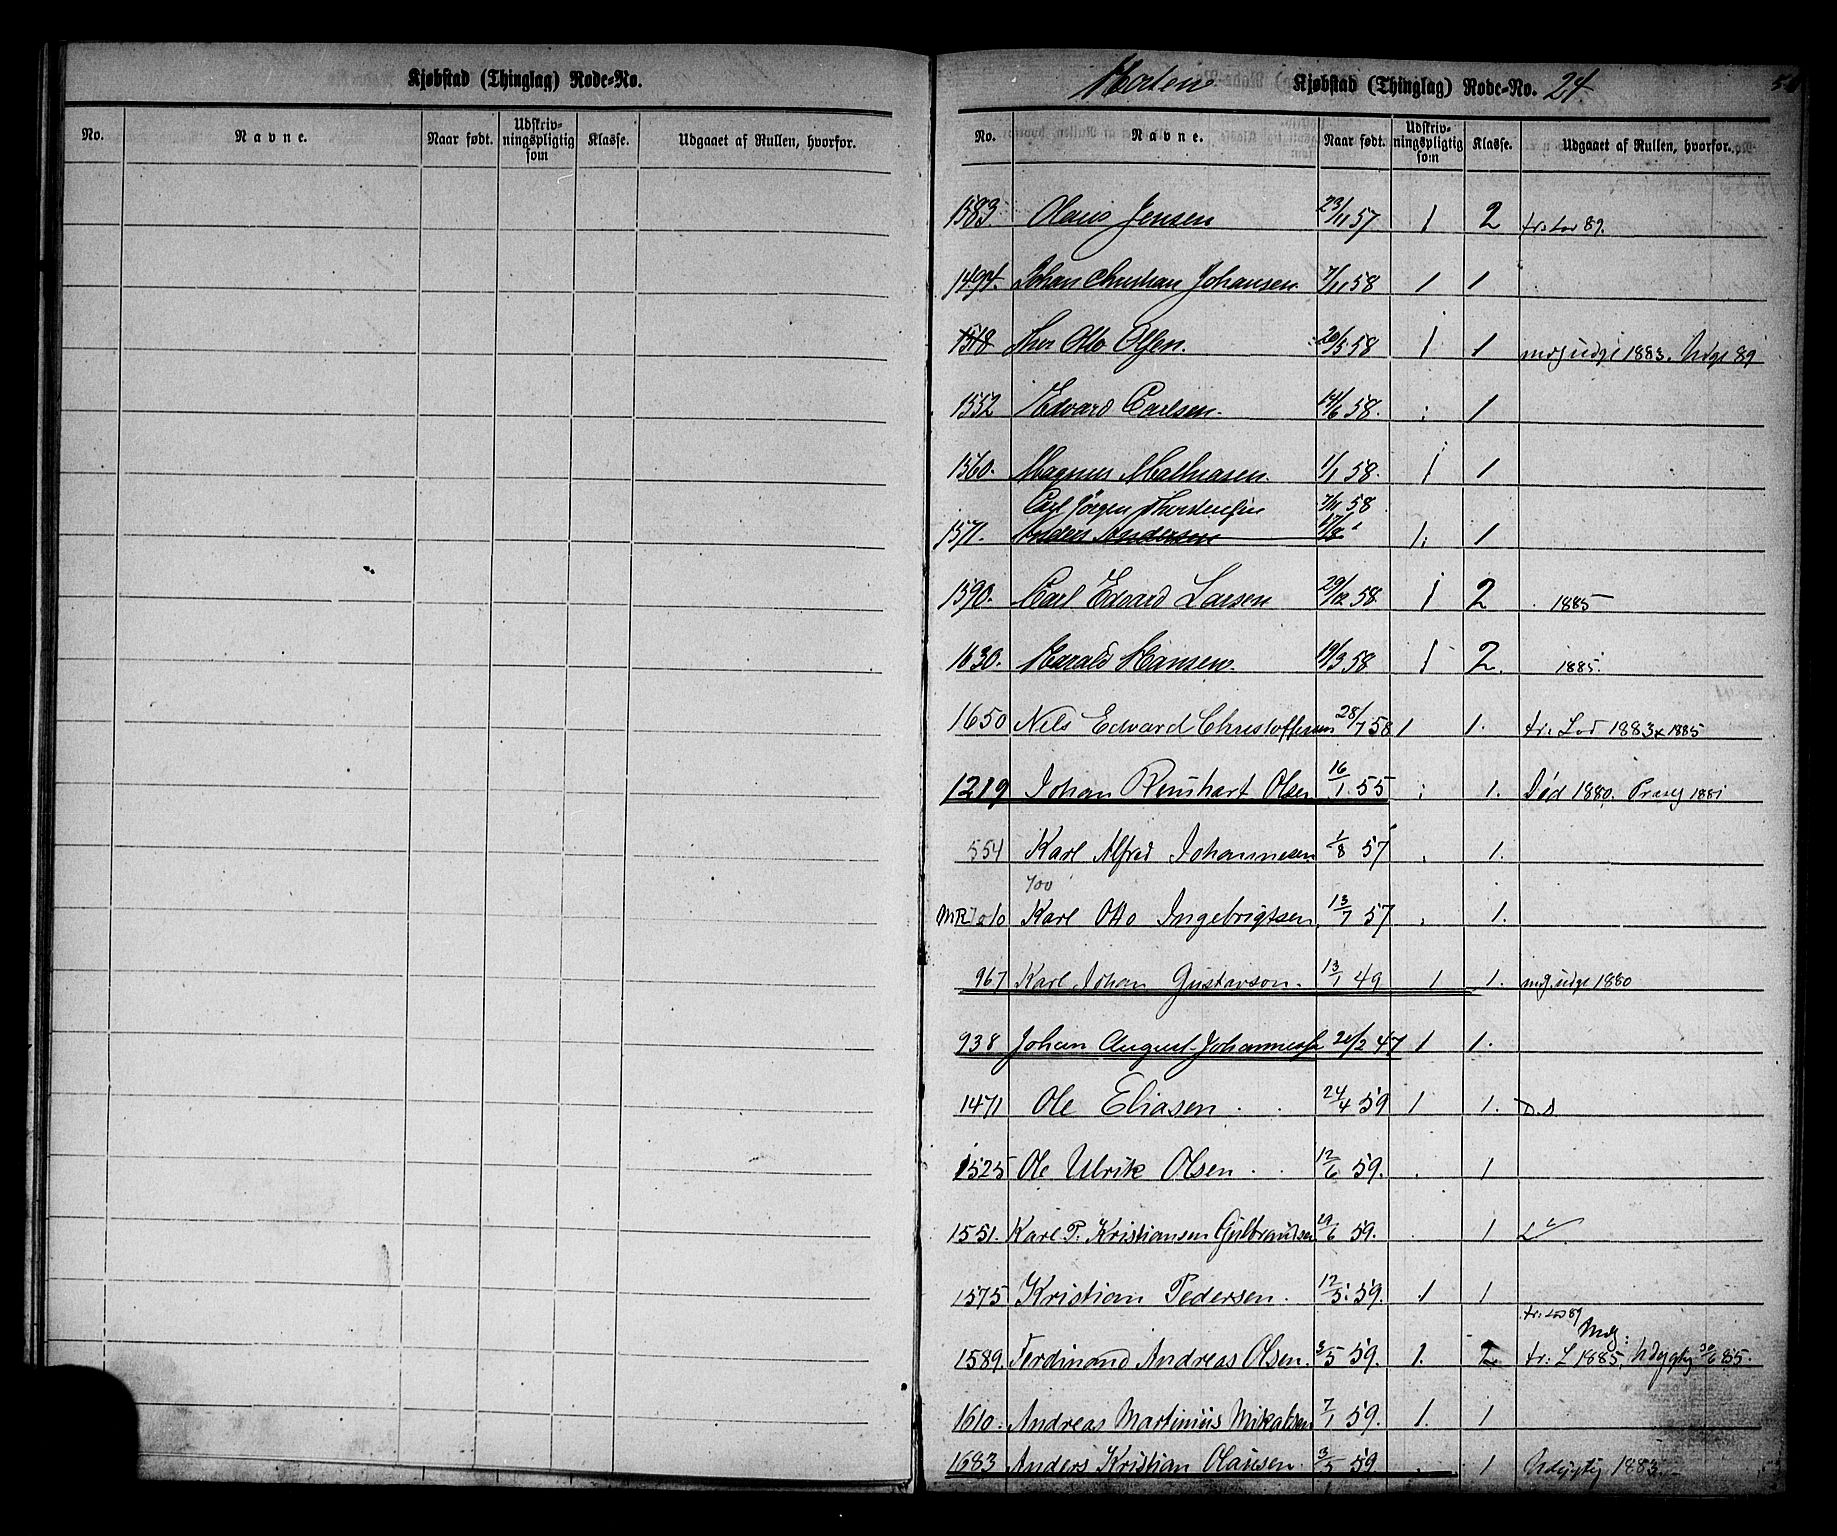 Kjøbstad (Thinglag) Rode-No.
No. Navne. Naar født. Udskriv-ningspligtig som Klasse. Udgaaet af Rullen, hvorfor.
Kjøbstad (Thinglag) Rode-No. 24.
No. Navne. Naar født. Udskriv-ningspligtig som Klasse. Udgaaet af Rullen, hvorfor.
1583. Olaus Jensen 23/11 57 1 2 fr: Lod 89.
1494. Johan Christian Johansen. 7/11 58 1 1
1518 Thor Otto Olsen. 20/5 58 1 1 mdg udgl 1883. Udgl 89
1552 Edvard Carlsen. 14/6 58. 1
1560. Magnus Mathiasen. 1/1 58. 1 1
Carl Jørgen Thorstensen 7/11 58
1571. Anders Andersen 1. 1
1590. Carl Edvard Larsen 29/12 58 1 2 1885
1630. Harald Hansen. 19/3 58 1 2. 1885.
1650 Nils Edvard Christoffersen 28/7 58 1 1. fr. Lod 1883 & 1885
1219 Johan Reinhart Olsen 16/1 55 1. Død 1880. Præstj 1881
554 Karl Alfred Johannesen 1/8 57 1.
700
MR Karl Otto Ingebrigtsen 13/7 57 1.
967 Karl Johan Gustavson. 13/1 49 1 1. mdg. udgl 1880
938 Johan August Johannessen 21/2 47 1 1.
1471 Ole Eliasen 24/4 59 1 1. D.D
1525 Ole Ulrik Olsen 12/6 59. 1
1551. Karl P. Kristiansen Gulbrandsen 29/6 59. 1
1575 Kristian Pedersen. 12/5 59. 1 1
fr: Lod 89
Mdg:
1589. Ferdinand Andreas Olsen. 3/5 59. 1. 2 fr: L 1885. Udygtig 30/6 85.
1610. Andreas Martinius Mikalsen 7/1 59. 1. 1
1683 Anders Kristian Olausen. 3/5 59. 1 Udygtig 1883.